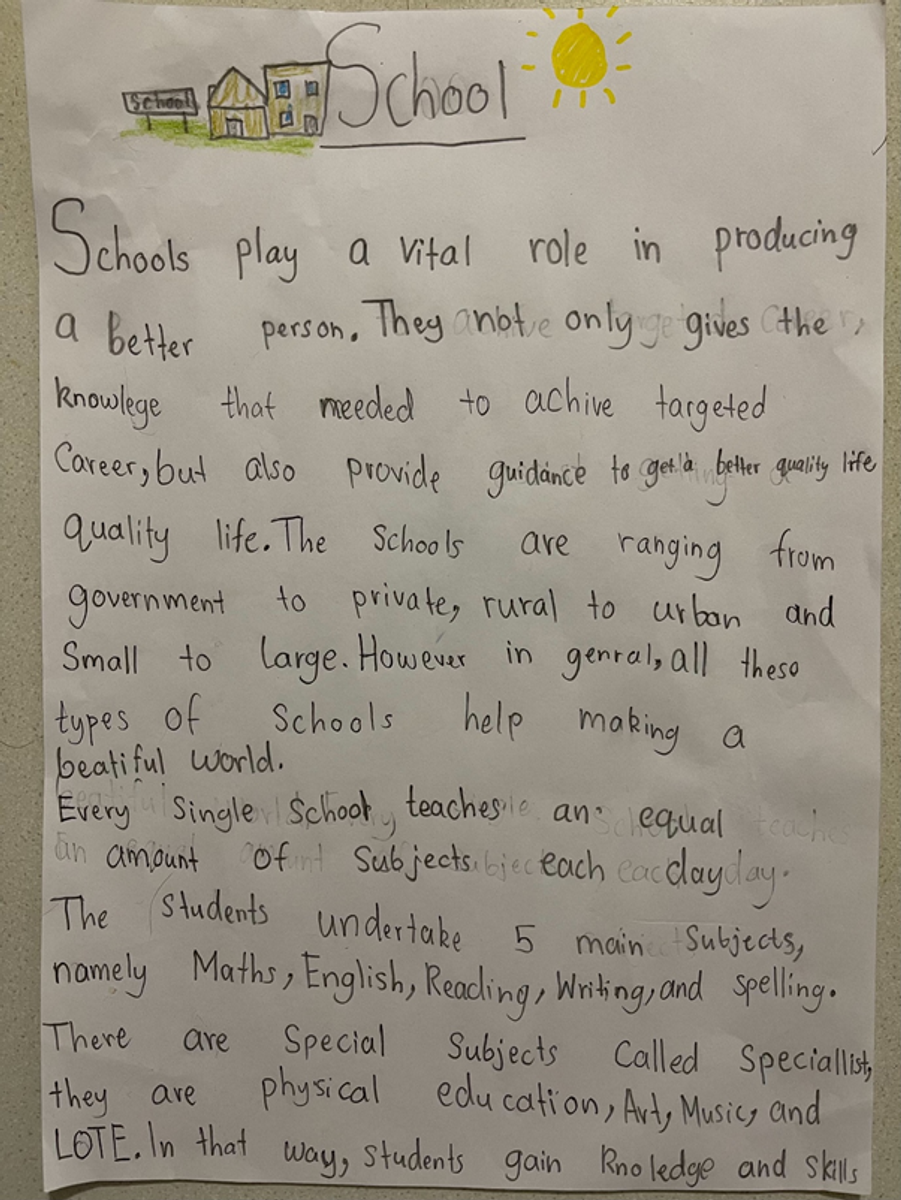 School
School
Schools play a vital role in producing
a better person. They not only gives the
knowlege that needed to achive targeted
Career, but also provide guidance to get a better quality life
quality life. The Schools are ranging from
government to private, rural to urban and
Small to large. However in genral, all these
types of Schools help making a
beatiful world.
Every Single School teaches an equal
amount of Subjects each day.
The Students undertake 5 main Subjects,
namely Maths, English, Reading, Writing, and spelling.
There are Special Subjects Called Speciallist,
they are physical education, Art, Music, and
LOTE. In that way, students gain knoledge and skills